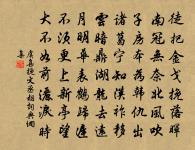 徒把金戈挽落暉
南冠無奈北風吹
子房本為韓仇出
諸葛寧知漢祚移
雲暗鼎湖龍去遠
月明華表鶴歸遲
不須更上新亭望
大不如前灑淚時
虞集挽文丞相詞典網
集